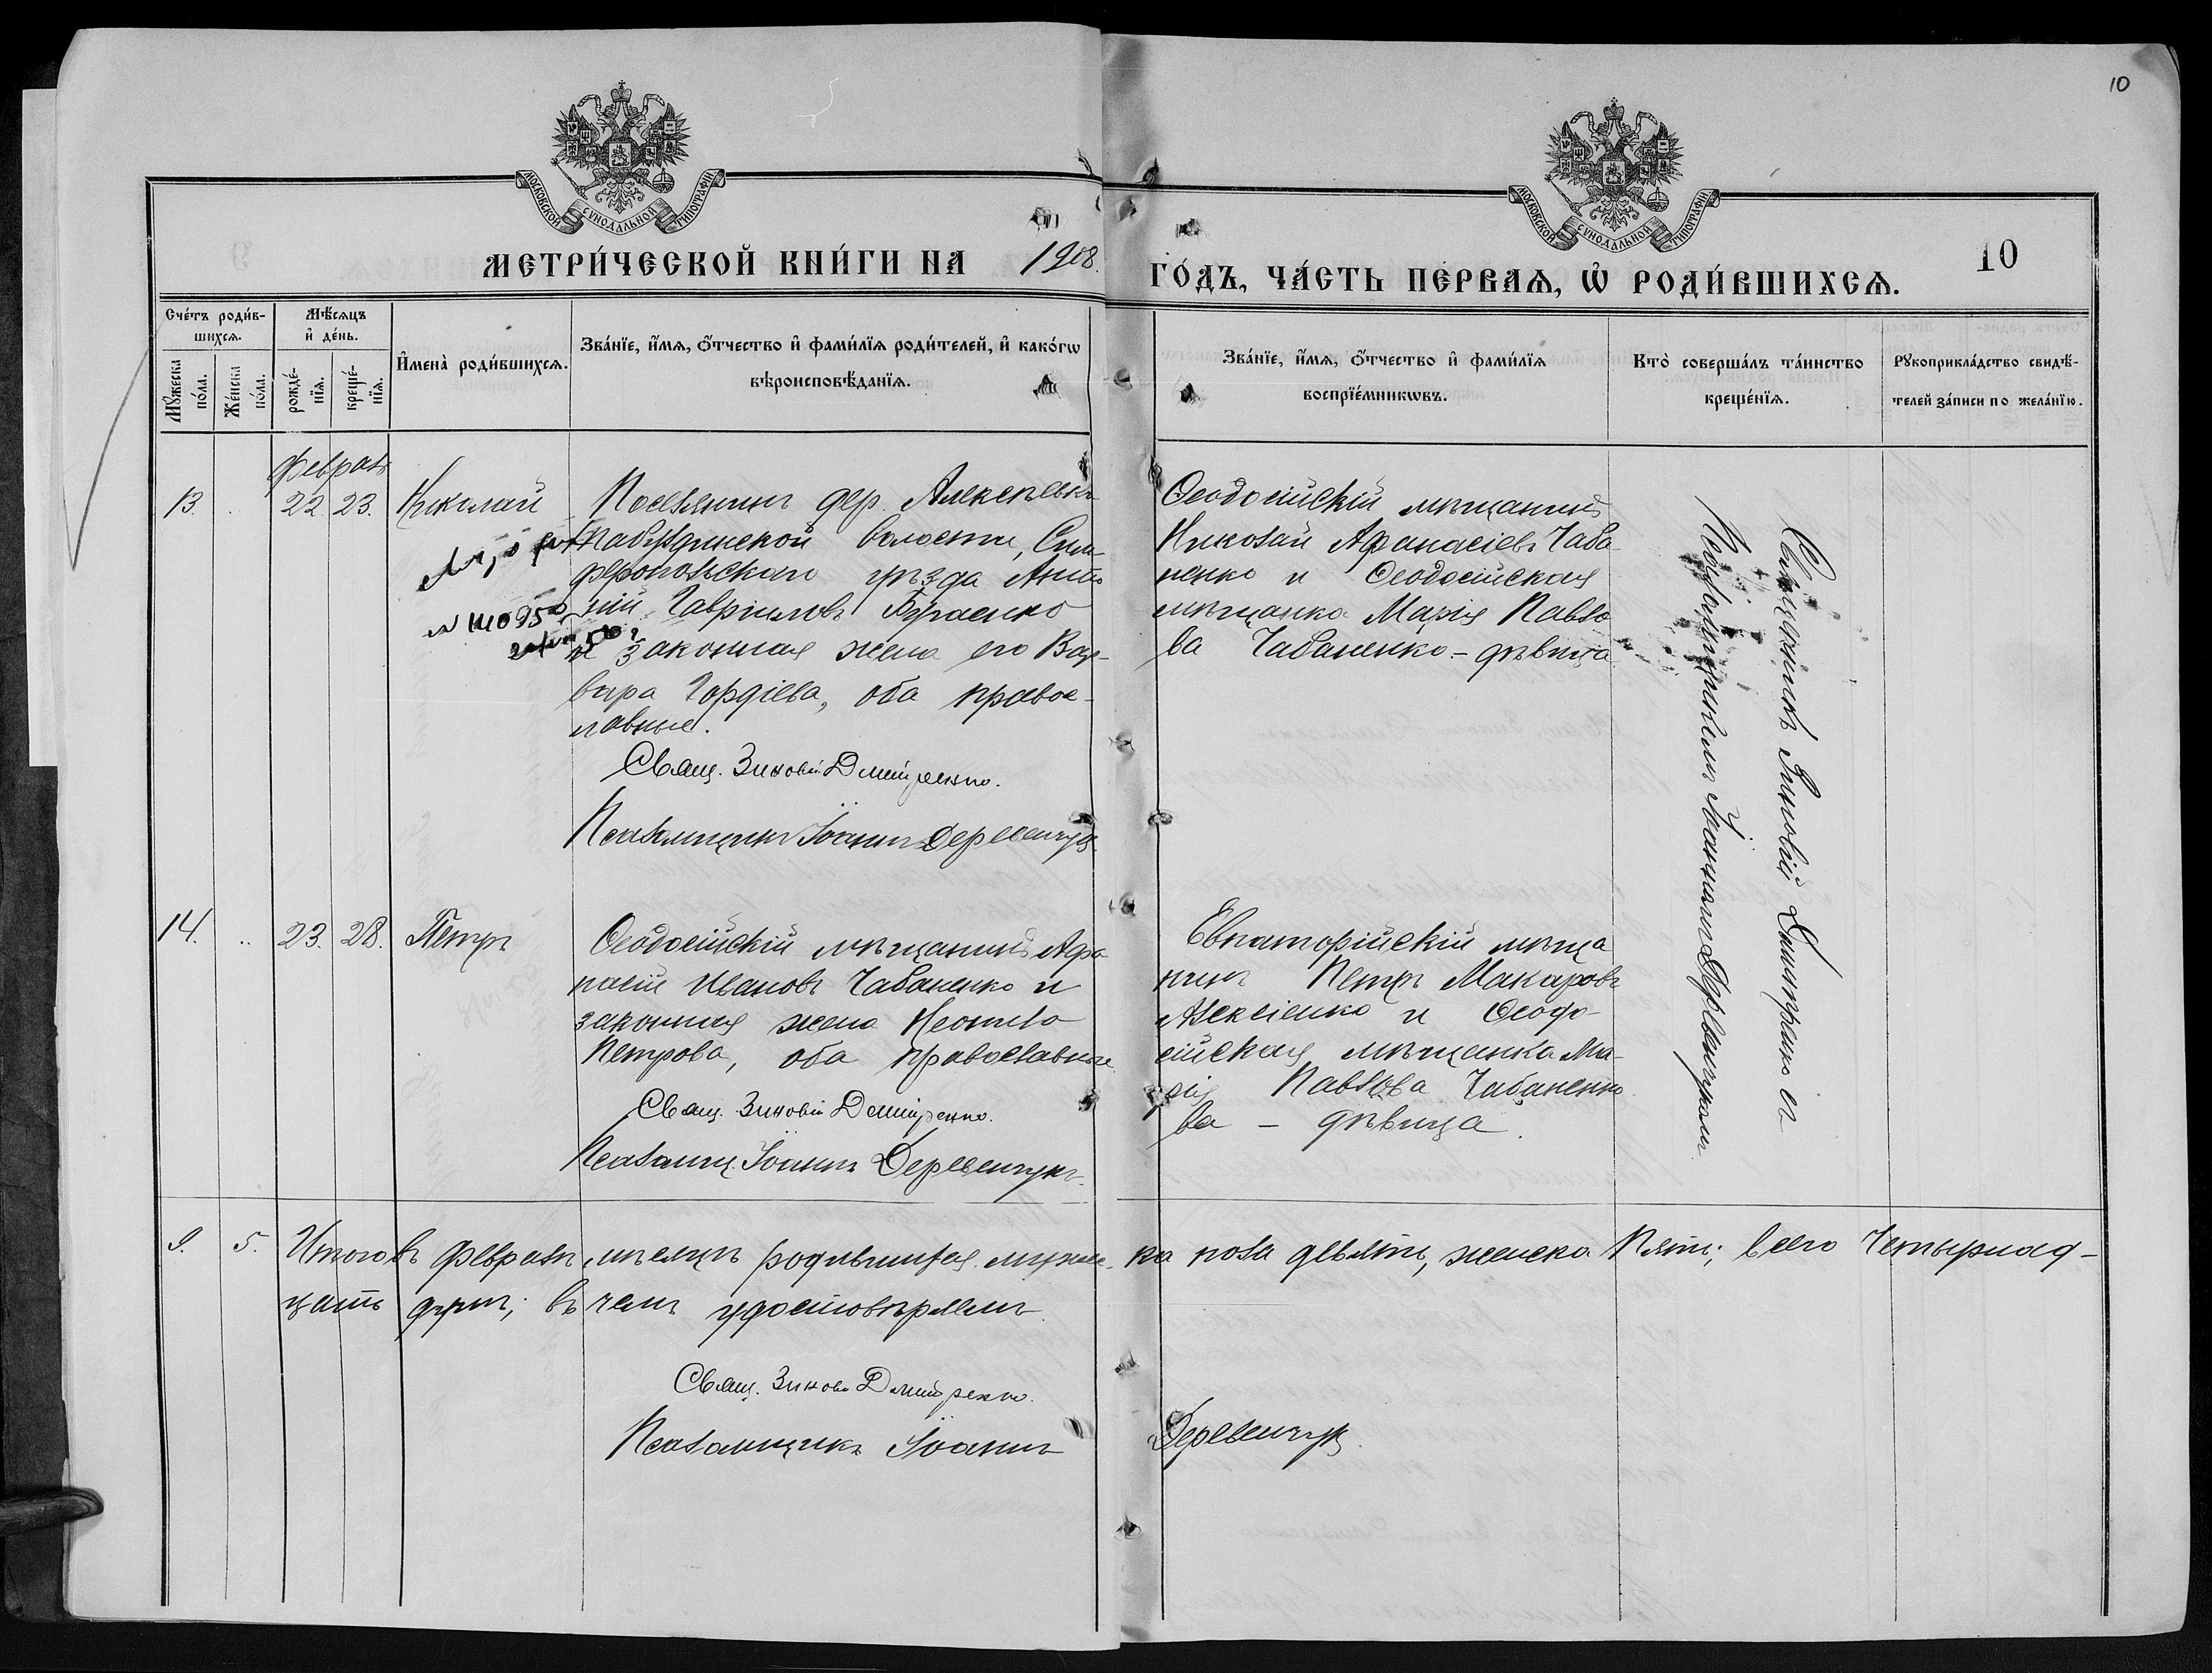 10
МОСКОВСКОЙ СѴНОДАЛЬНОЙ ТИПОГРАФІИ
МОСКОВСКОЙ СѴНОДАЛЬНОЙ ТИПОГРАФІИ
МЕТРИ́ЧЕСКОЙ КНИ́ГИ НА 1908.
ГО́ДЪ, ЧА́СТЬ ПЕ́РВАѦ, Ѿ РОДИ́ВШИХСѦ.
10
Сче́тъ роди́в-
шихсѧ.
Мѣ́сѧцъ
и҆ де́нь.
И҆мена̀ роди́вшихсѧ.
Зва́нїе, и҆́мѧ, ѻ҆́тчество и҆ фами́лїѧ роди́телей, и҆ како́гѡ
вѣроисповѣ́данїѧ.
Мꙋ́жеска
по́ла.
Же́нска
по́ла.
рожде́-
нїѧ.
креще́-
нїѧ.
Зва́нїе, и҆́мѧ, ѻ҆́тчество и҆ фами́лїѧ
воспрїе́мникѡвъ.
Кто̀ соверша́лъ та́инство
креще́нїѧ.
Рꙋкоприкла́дство свидѣ́-
телей за́писи по жела́нїю.
Февраль
13. 22. 23. Николай
Поселянинъ дер. Алексѣевки
Табулдинской волости, Сим-
феропольскаго уѣзда Анто-
ній Гавріиловъ Бураенко
и законная жена его Вар-
вара Гордіева, оба правос-
лавные.
Свящ. Зиновій Дмитренко.
Псаломщикъ Іоаннъ Деревенчук
№ 111095
Ѳеодосійскій мѣщанинъ
Николай Афанасіевъ Чаба-
ненко и Ѳеодосійская
мѣщанка Марія Павло-
ва Чабаненко - дѣвица
Священникъ Зиновій Дмитренко съ
Псаломщикомъ Іоанномъ Деревенчукомъ
14. 23. 28. Петръ
Ѳеодосійскій мѣщанинъ Афа-
насій Ивановъ Чабаненко и
законная жена Неонила
Петрова, оба православные
Свящ. Зиновій Дмитренко.
Псаломщ. Іоаннъ Деревенчукъ
Евпаторійскій мѣща
нинъ Петръ Макаровъ
Алексіенко и Ѳеодо-
сійская мѣщанка Ма-
рія Павлова Чабаненко
ва - дѣвица.
9. 5. Итого въ Февралѣ мѣсяцѣ родившихся мужес- ка пола девять, женска пять; всего четырнад-
цать душъ; въ чемъ удостовѣряемъ
Свящ. Зиновій Дмитренко.
Псаломщикъ Іоаннъ Деревенчук